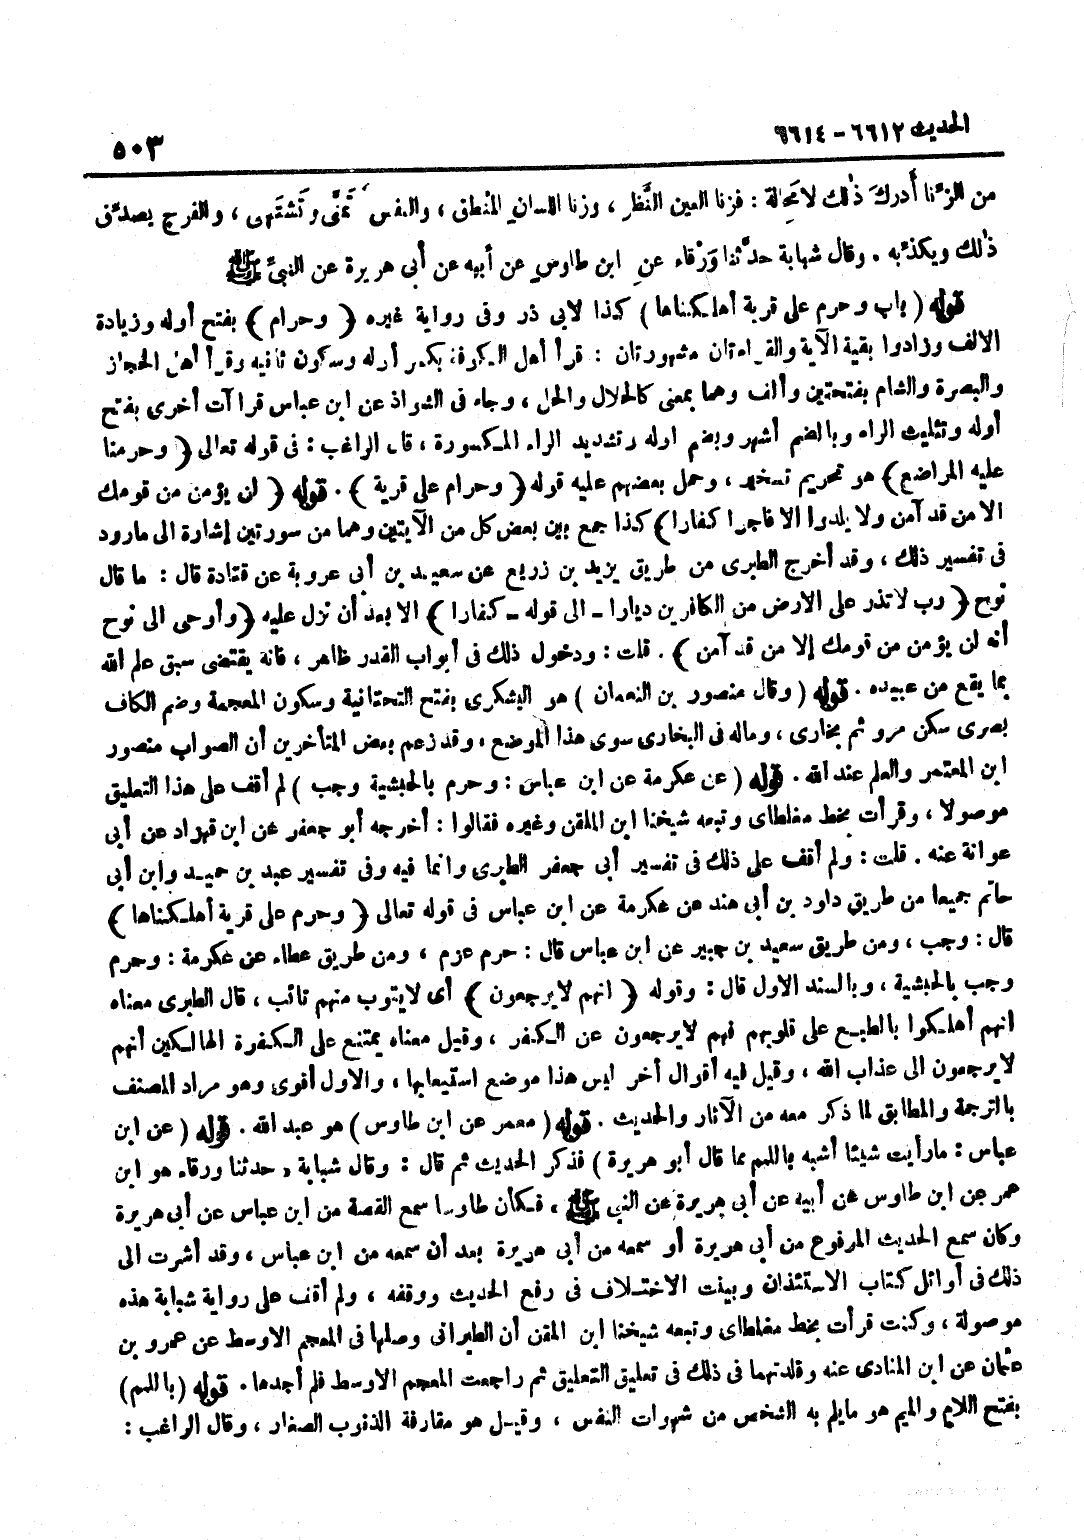 الحديث ٦٦١٢ - ٦٦١٤
٥٠٣
من الزِّنا أَدركَ ذٰلك لا مَحالة : فزِنا العين النَّظر ، وزنا اللسانِ المنْطق ، والنفس تَمنَّى وتَشتَهى ، والفرج يصدِّق
ذٰلك ويكذِّبه . وقال شبابة حدَّثنا وَرْقاء عنِ ابن طاوسٍ عن أبيه عن أبى هريرة عن النبىِّ ﷺ
قوله ( باب وحرم على قرية أهلكناها ) كذا لابى ذر وفى رواية غيره ( وحرام ) بفتح أوله وزيادة
الالف وزادوا بقية الآية والقراءتان مشهورتان : قرأ أهل الكوفة بكسر أوله وسكون ثانيه وقرأ أهل الحجاز
والبصرة والشام بفتحتين وألف وهما بمعنى كالحلال والحل ، وجاء فى الشواذ عن ابن عباس قراآت أخرى بفتح
أوله وتثليث الراء وبالضم أشهر وبضم أوله وتشديد الراء المكسورة ، قال الراغب : فى قوله تعالى ( وحرمنا
عليه المراضع ) هو تحريم تسخير ، وحمل بعضهم عليه قوله ( وحرام على قرية ) . قوله ( لن يؤمن من قومك
الا من قد آمن ولا يلدوا الا فاجرا كفارا ) كذا جمع بين بعض كل من الآيتين وهما من سورتين إشارة الى ما ورد
فى تفسير ذلك ، وقد أخرج الطبرى من طريق يزيد بن زريع عن سعيد بن أبى عروبة عن قتادة قال : ما قال
نوح ( رب لا تذر على الارض من الكافرين ديارا - الى قوله - كفارا ) الا بعد أن نزل عليه ( وأوحى الى نوح
أنه لن يؤمن من قومك إلا من قد آمن ) . قلت : ودخول ذلك فى أبواب القدر ظاهر ، فانه يقتضى سبق علم الله
بما يقع من عبيده . قوله ( وقال منصور بن النعمان ) هو اليشكرى بفتح التحتانية وسكون المعجمة وضم الكاف
بصرى سكن مرو ثم بخارى ، وماله فى البخارى سوى هذا الموضع ، وقد زعم بعض المتأخرين أن الصواب منصور
ابن المعتمر والعلم عند الله . قوله ( عن عكرمة عن ابن عباس : وحرم بالحبشية وجب ) لم أقف على هذا التعليق
موصولا ، وقرأت بخط مغلطاى وتبعه شيخنا ابن الملقن وغيره فقالوا : أخرجه أبو جعفر عن ابن قهزاد عن أبى
عوانة عنه . قلت : ولم أقف على ذلك فى تفسير أبى جعفر الطبرى وانما فيه وفى تفسير عبد بن حميد وابن أبى
حاتم جميعا من طريق داود بن أبى هند عن عكرمة عن ابن عباس فى قوله تعالى ( وحرم على قرية أهلكناها )
قال : وجب ، ومن طريق سعيد بن جبير عن ابن عباس قال : حرم عزم ، ومن طريق عطاء عن عكرمة : وحرم
وجب بالحبشية ، وبالسند الاول قال : وقوله ( انهم لا يرجعون ) أى لا يتوب منهم تائب ، قال الطبرى معناه
انهم أهلكوا بالطبع على قلوبهم فهم لا يرجعون عن الكفر ، وقيل معناه يمتنع على الكفرة الهالكين أنهم
لا يرجعون الى عذاب الله ، وقيل فيه أقوال أخر ليس هذا موضع استيعابها ، والاول أقوى وهو مراد المصنف
بالترجمة والمطابق لما ذكر معه من الآثار والحديث . قوله ( معمر عن ابن طاوس ) هو عبد الله . قوله ( عن ابن
عباس : ما رأيت شيئا أشبه باللمم مما قال أبو هريرة ) فذكر الحديث ثم قال : وقال شبابة ، حدثنا ورقاء هو ابن
عمر عن ابن طاوس عن أبيه عن أبى هريرة عن النبى ﷺ ، فكأن طاوسا سمع القصة من ابن عباس عن أبى هريرة
وكان سمع الحديث المرفوع من أبى هريرة أو سمعه من أبى هريرة بعد أن سمعه من ابن عباس ، وقد أشرت الى
ذلك فى أوائل كتاب الاستئذان وبينت الاختلاف فى رفع الحديث ووقفه ، ولم أقف على رواية شبابة هذه
موصولة ، وكنت قرأت بخط مغلطاى وتبعه شيخنا ابن الملقن أن الطبرانى وصلها فى المعجم الاوسط عن عمرو بن
عثمان عن ابن المنادى عنه وقلدتهما فى ذلك فى تعليق التعليق ثم راجعت المعجم الاوسط فلم أجدها . قوله ( باللمم )
بفتح اللام والميم هو ما يلم به الشخص من شهوات النفس ، وقيل هو مقارفة الذنوب الصغار ، وقال الراغب :